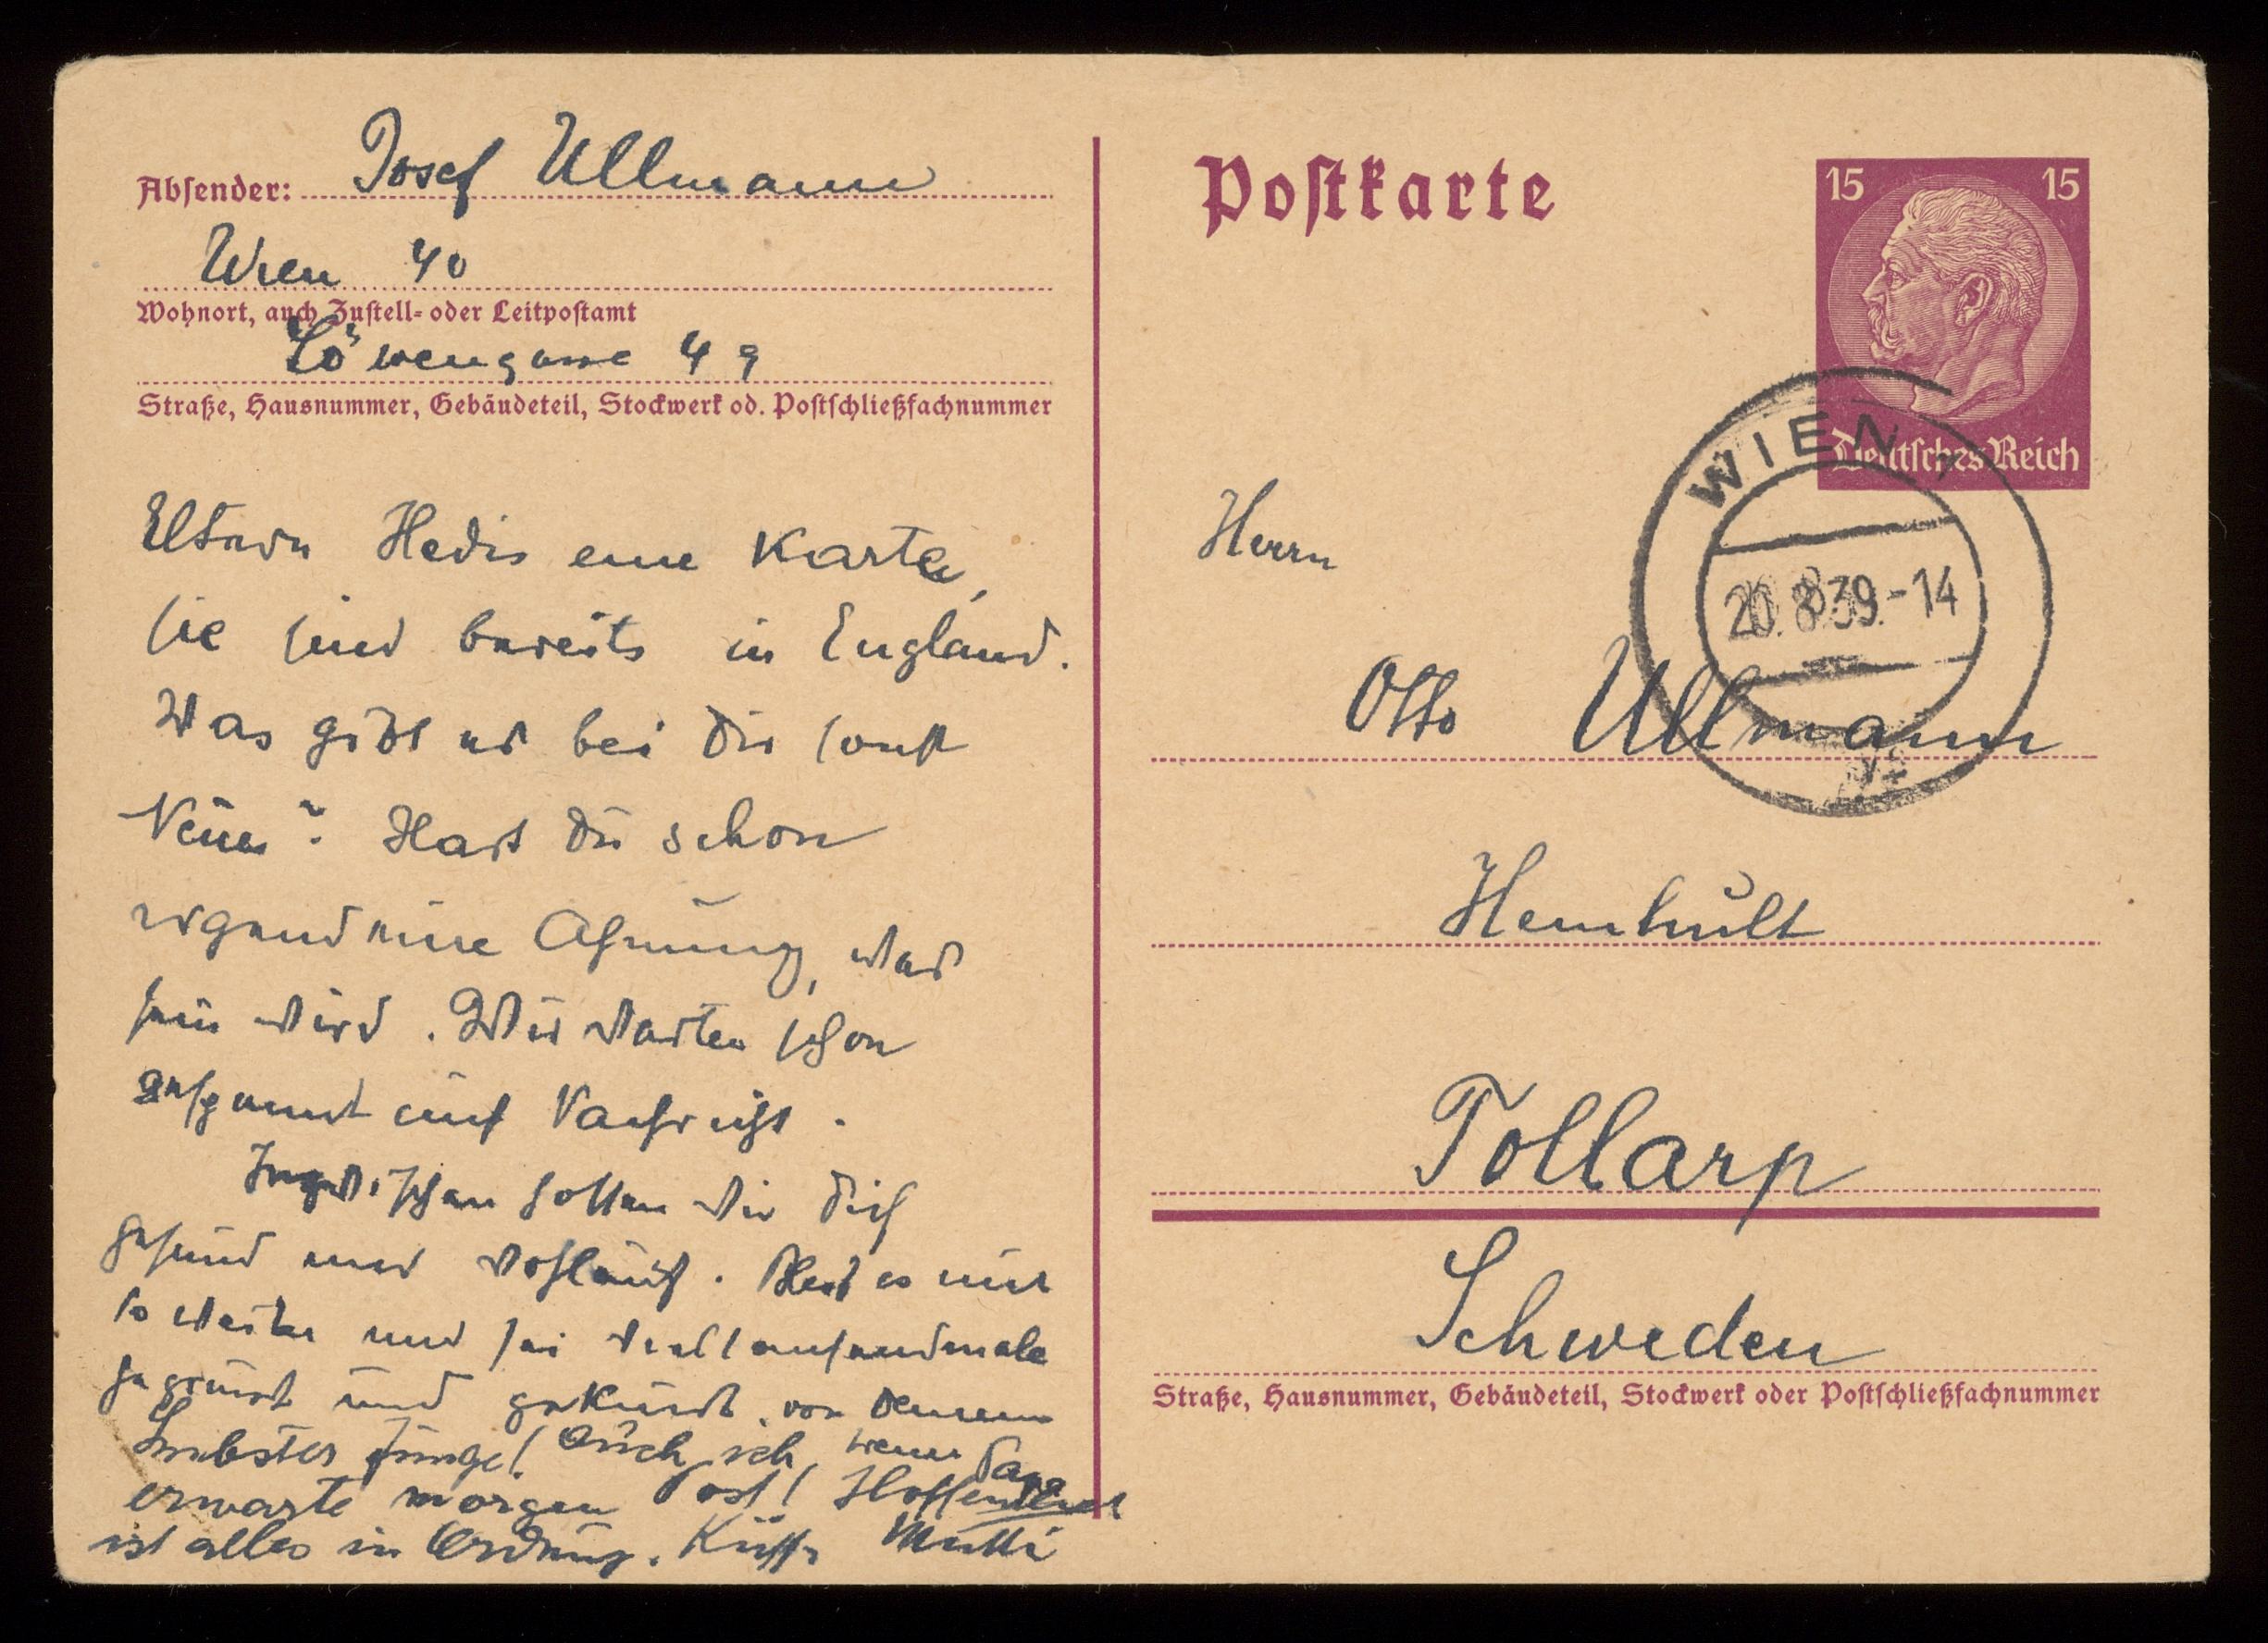 Absender: Josef Ullmann
Wien 40
Wohnort, auch Zustell- oder Leitpostamt
Löwengasse 49
Straße, Hausnummer, Gebäudeteil, Stockwerk od. Postschließfachnummer
Eltern Hedis eine Karte,
sie sind bereits in England.
Was gibt es bei Dir sonst
Neues? Hast Du schon
irgendeine Ahnung, was
sein wird. Wir warten schon
gespannt auf Nachricht.
Inzwischen hoffen wir Dich
gesund und wohlauf. Bleib es nur
so weiter und sei vieltausendmale
gegrüsst und geküsst von Deinem
Papa
Liebster Junge! Auch ich
erwarte morgen Post! Hoffentlich
ist alles in Ordnung. Küsse Mutti
Postkarte
15 15
Deutsches Reich
WIEN
20.8.39.-14
Herrn
Otto Ullmann
Hemhult
Tollarp
Schweden
Straße, Hausnummer, Gebäudeteil, Stockwerk oder Postschließfachnummer